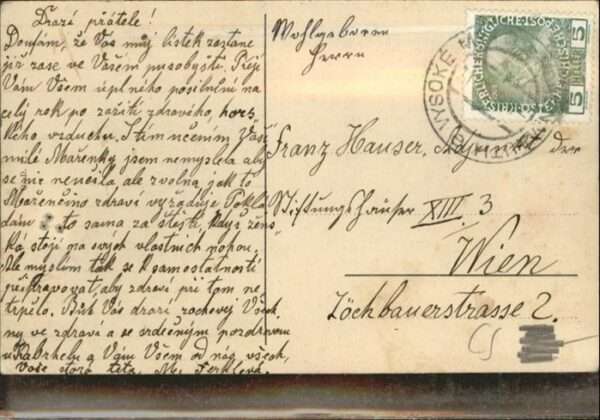 Drazí přátelé!
Doufám, že Vás můj lístek zastane
již zase ve Vašem působyšti. Přeji
Vám Všem úplného posilnění na
celý rok po zažití zdravého, hors-
kého vzduchu. S tím učením Vaší
milé Mařenky jsem nemyslela aby
se nic neučila ale zvolna, jak to
Mařenčino zdraví vyžaduje. Pokla-
dám to sama za štěstí, když žens-
ká stojí na svých vlastních nohou,
Ale myslím tak se k samostatnosti
připravovat, aby zdraví při tom ne
trpělo. Bůh Vás drazí zachovej Všech-
ny ve zdraví a se srdečným pozdravem
a Vám Všem od nás všech,
Vaše stará teta, M.
Wohlgeboren
Herrn
Franz Hauser, Adjunkt der
Stiftungshäuser XIII 3
Wien
Zöchbauerstrasse 2.
WYSOKÉ M
5 HELLER 5